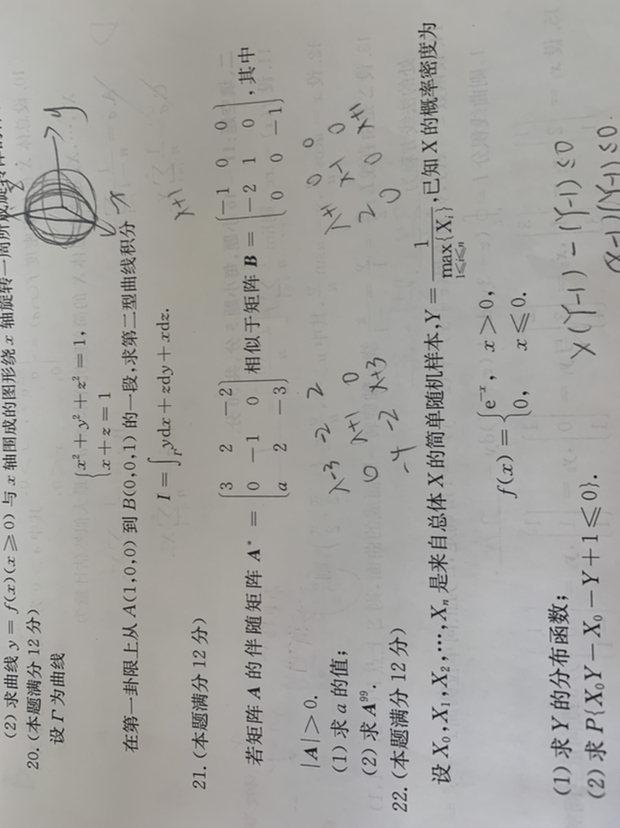 (2) 求曲线 y = f(x)(x ⩾ 0) 与 x 轴围成的图形绕 x 轴旋转一周所成旋转体的
20. (本题满分 12 分)
设 Γ 为曲线
{x² + y² + z² = 1,
x + z = 1
在第一卦限上从 A(1,0,0) 到 B(0,0,1) 的一段,求第二型曲线积分
I = ∫_Γ ydx + zdy + xdz.
21. (本题满分 12 分)
若矩阵 A 的伴随矩阵 A* = [3 2 -2; 0 -1 0; a 2 -3] 相似于矩阵 B = [-1 0 0; -2 1 0; 0 0 -1], 其中
|A| > 0.
(1) 求 a 的值;
(2) 求 A⁹⁹.
22. (本题满分 12 分)
设 X₀,X₁,X₂,⋯,Xₙ 是来自总体 X 的简单随机样本,Y = 1/max{Xᵢ} 1⩽i⩽n,已知 X 的概率密度为
f(x) = {e⁻ˣ, x > 0,
0, x ⩽ 0.
(1) 求 Y 的分布函数;
(2) 求 P{X₀Y − X₀ − Y + 1 ⩽ 0}.
z
y
x
λ+1
λ-3 -2 2
0 λ+1 0
-4 -2 λ+3
λ+1 0 0
2 λ-1 0
0 0 λ+1
X(Y-1) - (Y-1) ≤ 0
(X-1)(Y-1) ≤ 0.